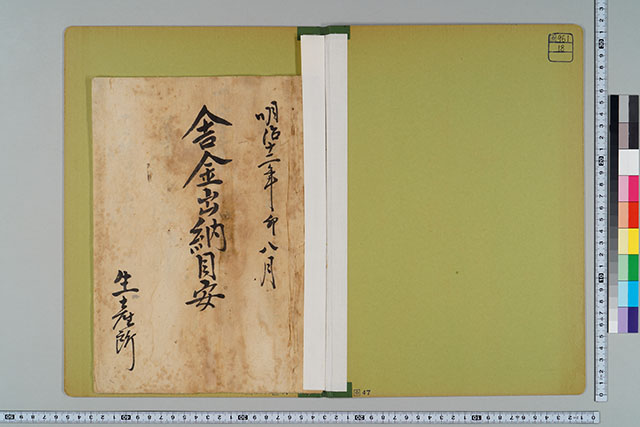 明治十二年卯八月
舎金出納目安
生産所
6961
18
47